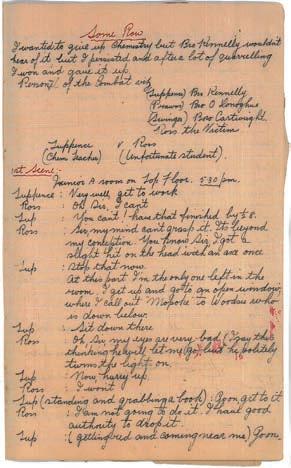 Some Row
I wanted to give up Chemistry but Bro Kennelly wouldn't
hear of it but I persisted and after a lot of quarrelling
I won and gave it up.
of the Combat
Tuppence) Bro Kennelly
Bro O'Donoghue
Bro Cartwright
Ross the Victim
Tuppence v Ross
(Chem Teacher) (Unfortunate student).
1st Scene:
Junior A room on Top Floor. 5.30 pm.
Tuppence : Very well get to work
Ross : Oh Sir, I can't
Tup : You can't! have that finished by ¼ to 8.
Ross : Sir my mind can't grasp it. Its beyond
my conception. You know Sir, I got a
slight hit on the head with an axe once
Tup : Stop that now.
At this part I'm the only one left in the
room. I get up and go to an open window
where I call out "Mopoke" to Woodsie who
is down below.
Tup : Sit down there
Ross : Oh Sir, my eyes are very bad (I say this
thinking he will let me go, but he politely
turns the light on.
Tup : Now hurry up.
Ross : I won't
Tup (standing and grabbing a book) : Go on get to it
Ross : I am not going to do it. I have good
authority to drop it.
Tup : (getting wed and coming near me) Go on.